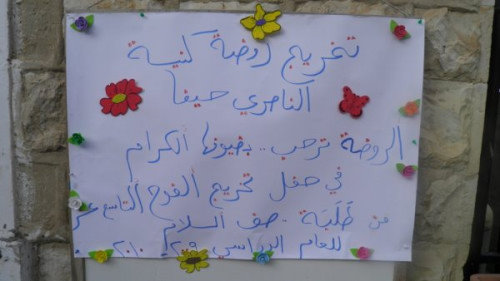 تخريج روضة كنيسة
الناصري حيفا
الروضة ترحب .. بضيوفها الكرام
في حفل تخريج الفوج التاسع عشر
من طَلَبَة . صف السلام
للعام الدراسي ٢٠٠٩ ٢٠١٠